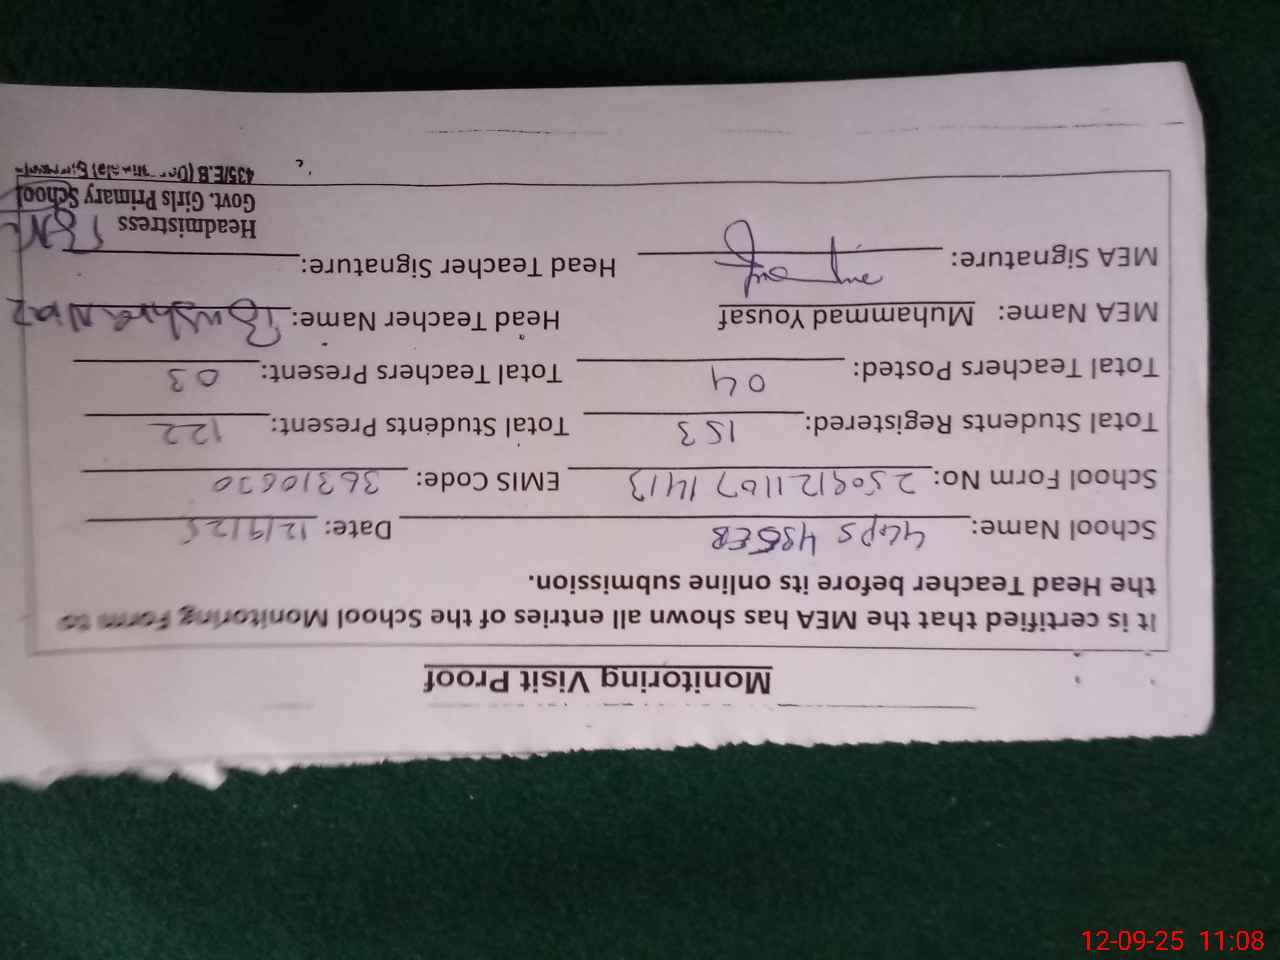 Monitoring Visit Proof
It is certified that the MEA has shown all entries of the School Monitoring Form to
the Head Teacher before its online submission.
School Name: GGPS 435EB Date: 12/9/25
School Form No: 2509121107 1413 EMIS Code: 36310630
Total Students Registered: 153 Total Students Present: 122
Total Teachers Posted: 04 Total Teachers Present: 03
MEA Name: Muhammad Yousaf Head Teacher Name: Bushra Niaz
MEA Signature: Head Teacher Signature:
Headmistress
Govt. Girls Primary School
435/E.B
12-09-25 11:08